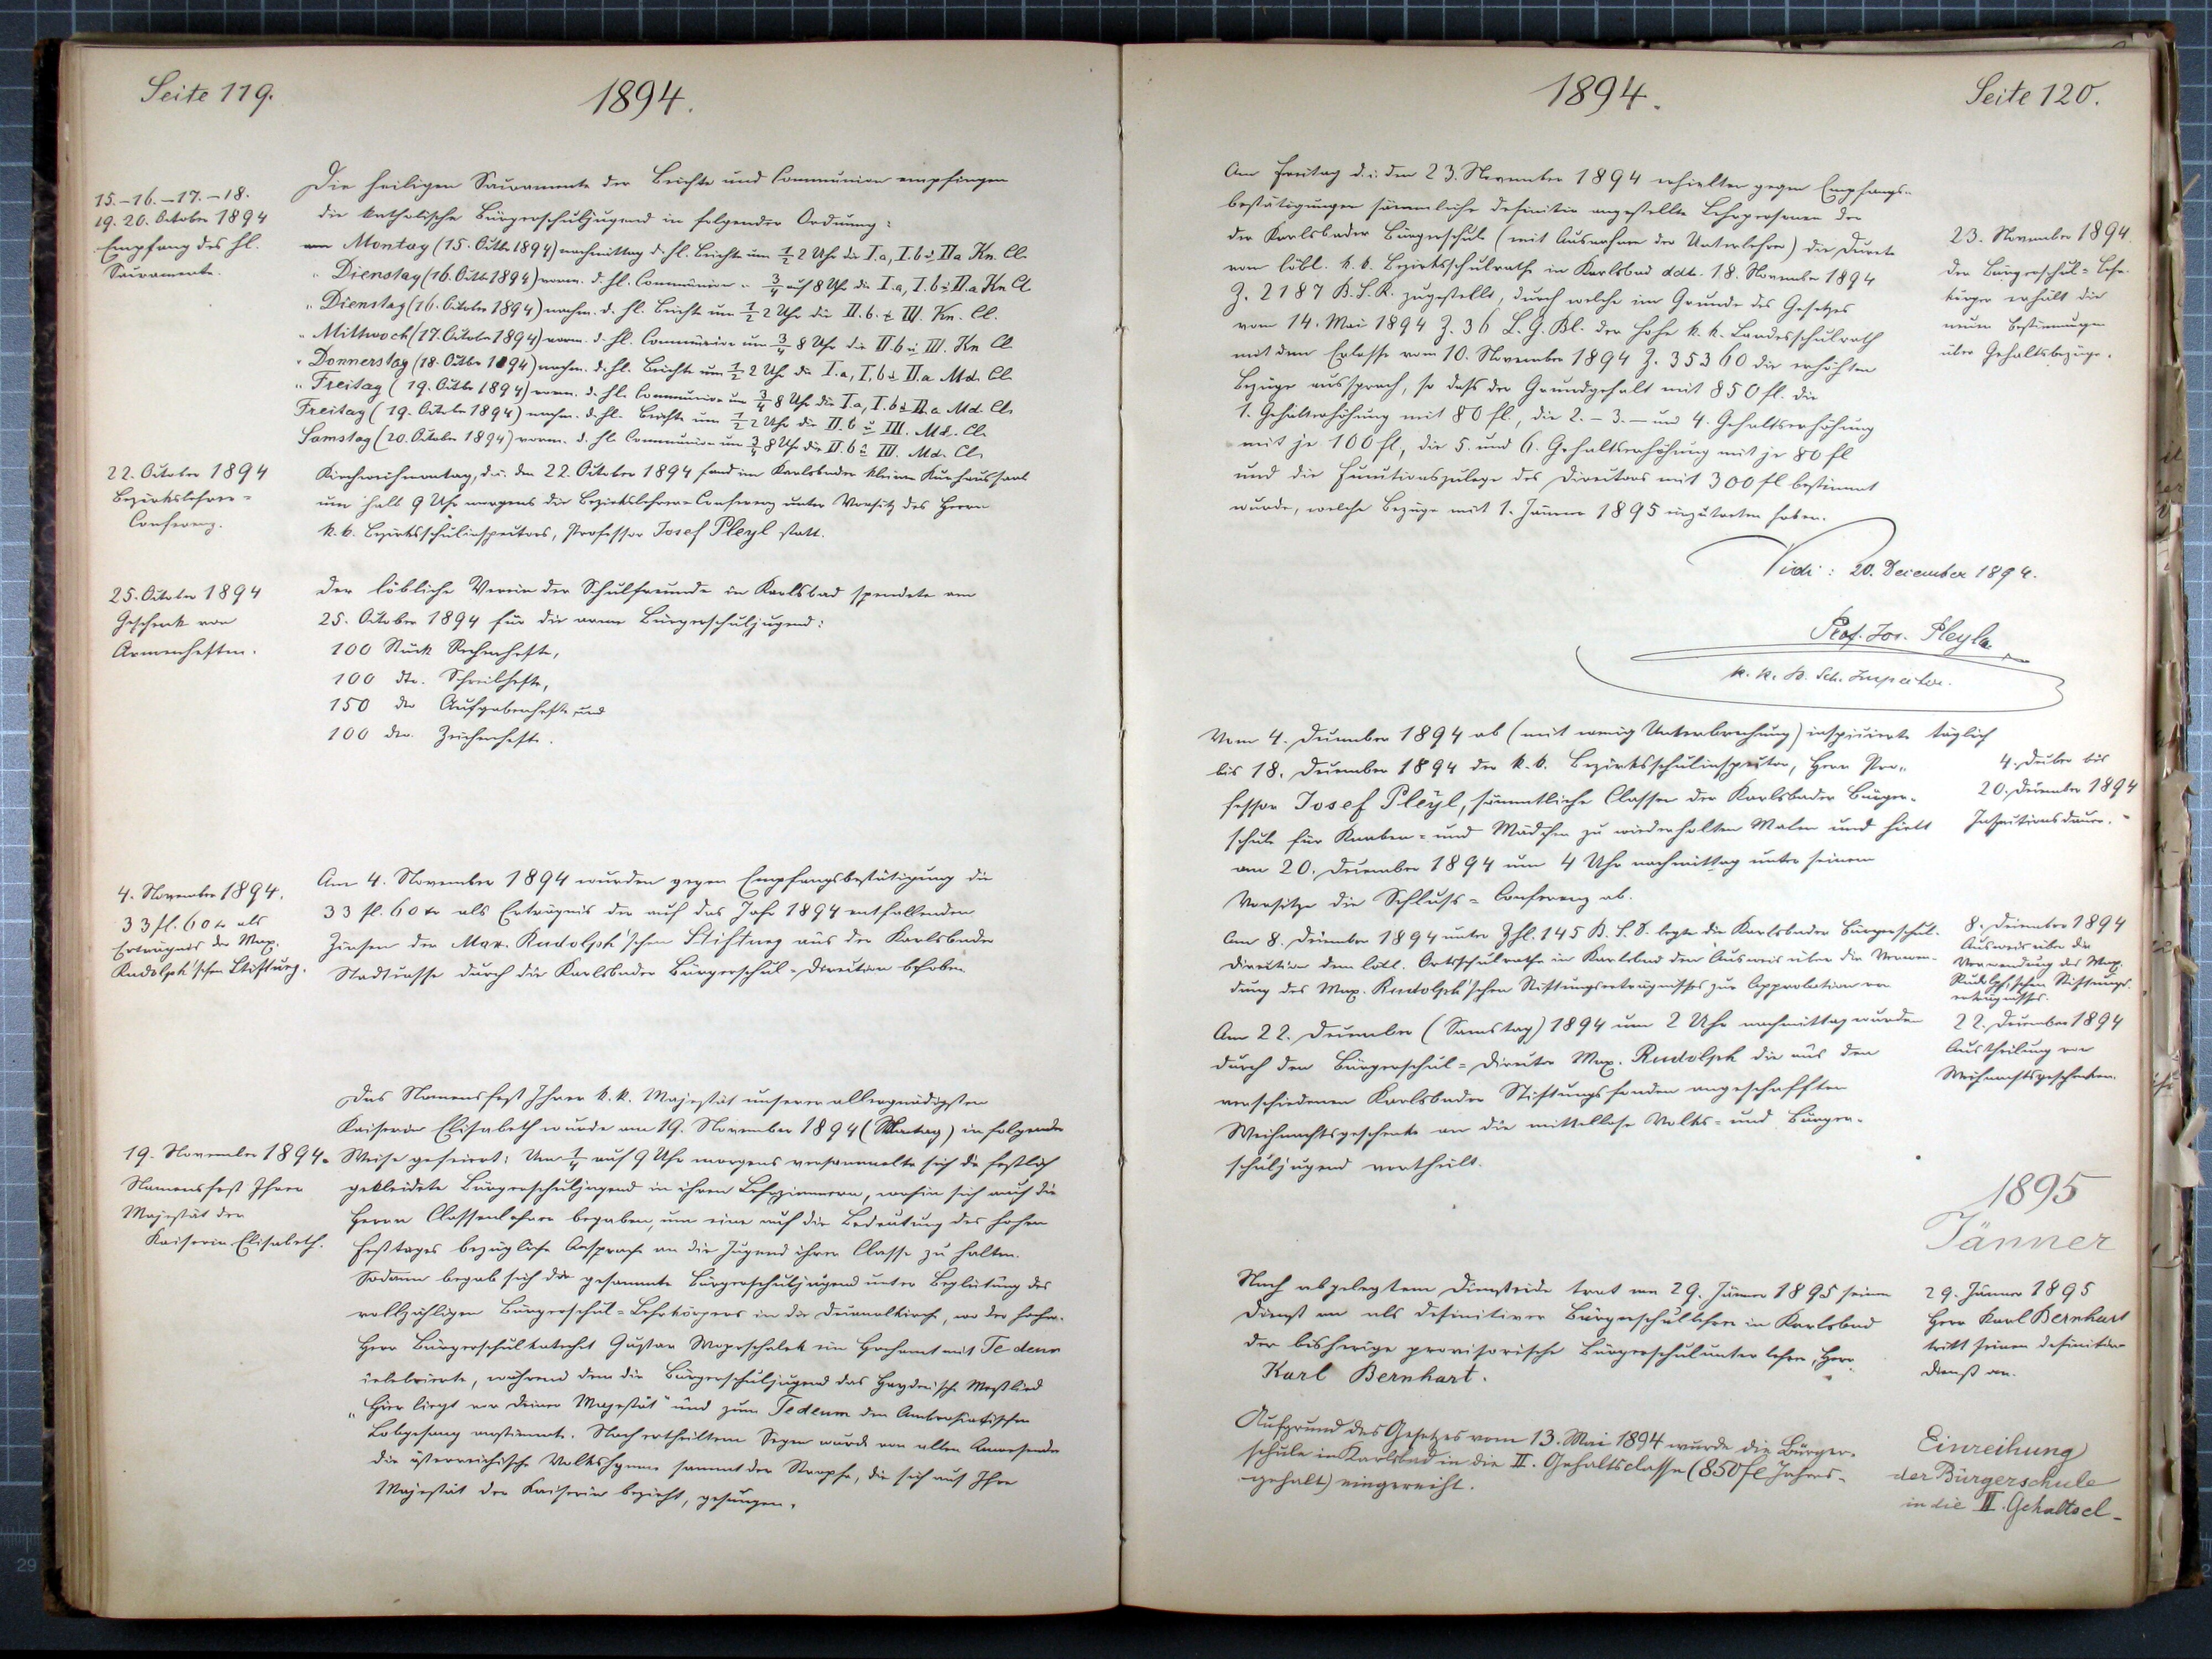 Seite 119.
1894.
15.–16.–17.–18.
19. 20. October 1894
Empfang des hl.
Sacramente.
Die heiligen Sacramente der Beichte und Communion empfingen
die katholische Bürgerschuljugend in folgender Ordnung:
am Montag (15. Octbr 1894) nachmittag d. hl. Beichte um ½ 2 Uhr die I.a, I.b u. II.a Kn. Cl.
" Dienstag (16. Octb. 1894) vorm. d. hl. Communion " ¾ auf 8 Uhr die I.a, I.b u. II.a Kn Cl
" Dienstag (16. October 1894) nachm. d. hl. Beichte um ½ 2 Uhr die II.b. & III. Kn. Cl.
" Mittwoch (17. October 1894) vorm. d. hl. Communion um ¾ 8 Uhr die II.b u III. Kn Cl
" Donnerstag (18. Octbr 1894) nachm. d. hl. Beichte um ½ 2 Uhr die I.a, I.b u II.a Md. Cl.
" Freitag (19. Octbr 1894) vorm. d. hl. Communion um ¾ 8 Uhr die I.a, I.b u II.a Md. Cl.
Freitag (19. October 1894) nachm. d. hl. Beichte um ½ 2 Uhr die II.b u III. Md. Cl.
Samstag (20. October 1894) vorm. d. hl. Communion um ¾ 8 Uhr die II.b u III. Md. Cl.
22. October 1894
Bezirkslehrer=
Conferenz.
Kirchweihmontag, d. i. den 22. October 1894 fand im Karlsbader kleinen Kurhaussaal
um halb 9 Uhr morgens die Bezirkslehrer-Conferenz unter Vorsitz des Herrn
k. k. Bezirksschulinspectors, Professor Josef Pleyl statt.
25. October 1894
Geschenk von
Armenheften.
Der löbliche Verein der Schulfreunde in Karlsbad spendete am
25. October 1894 für die arme Bürgerschuljugend:
100 Stück Rechenhefte,
100 dto. Schreibhefte,
150 dto Aufgabenhefte und
100 dto. Zeichenhefte.
4. November 1894.
33 fl. 60 kr als
Erträgnis der Max.
Rudolph'schen Stiftung.
Am 4. November 1894 wurden gegen Empfangsbestätigung die
33 fl. 60 kr als Erträgnis der auf das Jahr 1894 entfallenden
Zinsen der Max. Rudolph'schen Stiftung aus der Karlsbader
Stadtcasse durch die Karlsbader Bürgerschul-Direction behoben
19. November 1894.
Namensfest Ihrer
Majestät der
Kaiserin Elisabeth.
Das Namensfest Ihrer k. k. Majestät unserer allergnädigsten
Kaiserin Elisabeth wurde am 19. November 1894 (Montag) in folgender
Weise gefeiert: Um ¼ auf 9 Uhr morgens versammelte sich die festlich
gekleidete Bürgerschuljugend in ihren Lehrzimmern, wohin sich auch die
Herrn Classenlehrer begaben, um eine auf die Bedeutung des hohen
Festtages bezügliche Ansprache an die Jugend ihrer Classe zu halten.
Sodann begab sich die gesammte Bürgerschuljugend unter Begleitung des
vollzähligen Bürgerschul=Lehrkörpers in die Decanalkirche, wo der hochw.
Herr Bürgerschulkatechet Gustav ein Hochamt mit Te deum
celebrierte, während dem die Bürgerschuljugend das Haydn'sche Meßlied
"Hier liegt vor Deiner Majestät" und zum Te deum den Ambrosianischen
Lobgesang anstimmte. Nach ertheiltem Segen wurde von allen Anwesenden
die österreichische Volkshymne sammt der Strophe, die sich auf Ihre
Majestät der Kaiserin bezieht, gesungen.
1894.
Seite 120.
Am Freitag d. i. den 23. November 1894 erhielten gegen Empfangs-
bestätigungen sämmtliche definitiv angestellte Lehrpersonen der
der Karlsbader Bürgerschule (mit Ausnahme der Unterlehrer) die Decrete
vom löbl. k. k. Bezirksschulrathe in Karlsbad ddto. 18. November 1894
Z. 2187 B.S.R. zugestellt, durch welche im Grunde des Gesetzes
vom 14. Mai 1894 Z. 36 L. G. Bl. der hohe k. k. Landesschulrath
mit dem Erlasse vom 10. November 1894 Z. 35360 die erhöhten
Bezüge aussprach, so dass der Grundgehalt mit 850 fl. die
1. Gehaltserhöhung mit 80 fl., die 2. – 3. – und 4. Gehaltserhöhung
mit je 100 fl, die 5. und 6. Gehaltserhöhung mit je 80 fl
und die Functionszulage des Directors mit 300 fl bestimmt
wurde, welche Bezüge mit 1. Jänner 1895 einzutreten haben.
23. November 1894.
Der Bürgerschul=Lehr-
körper erhält die
neuen Bestimmungen
über Gehaltsbezüge.
Vidi: 20. December 1894.
Prof. Jos. Pleyl
k. k. B. Sch. Inspector.
Vom 4. December 1894 ab (mit wenig Unterbrechung) inspicierte täglich
bis 18. December 1894 der k. k. Bezirksschulinspector, Herr Pro-
fessor Josef Pleyl, sämmtliche Classen der Karlsbader Bürger-
schule für Knaben= und Mädchen zu wiederholten Malen und hielt
am 20. December 1894 um 4 Uhr nachmittag unter seinem
Vorsitze die Schluss=Conferenz ab.
4. Decbr bis
20. December 1894
Inspectionsdauer.
Am 8. December 1894 unter Zhl. 145 B. S. D. legte die Karlsbader Bürgerschul-
direction dem löbl. Ortsschulrathe in Karlsbad den Ausweis über die Verwen-
dung des Max. Rudolph'schen Stiftungserträgnisses zur Approbation vor
8. December 1894
Ausweis über die
Verwendung des Max.
Rudolph'schen Stiftungs-
erträgnisses.
Am 22. December (Samstag) 1894 um 2 Uhr nachmittag wurden
durch den Bürgerschul=Director Max. Rudolph die aus den
verschiedenen Karlsbader Stiftungsfonden angeschafften
Weihnachtsgeschenke an die mittellose Volks= und Bürger-
schuljugend vertheilt.
22. December 1894
Austheilung von
Weihnachtsgeschenken.
1895
Jänner
Nach abgelegtem Diensteide trat am 29. Jänner 1895 seinen
Dienst an als definitiver Bürgerschullehrer in Karlsbad
der bisherige provisorische Bürgerschulunterlehrer, Herr
Karl Bernhart.
29. Jänner 1895
Herr Karl Bernhart
tritt seinen definitiven
Dienst an.
Aufgrund des Gesetzes vom 13. Mai 1894 wurde die Bürger-
schule in Karlsbad in die II. Gehaltsclasse (850 fl Jahres-
gehalt) eingereiht.
Einreihung
der Bürgerschule
in die II. Gehaltscl-